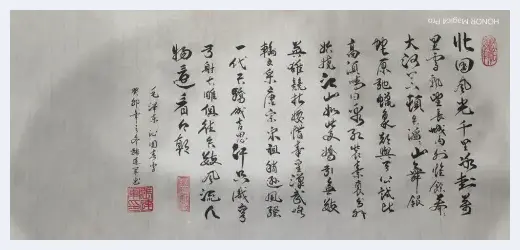 北国风光千里冰封万
里雪飘望长城内外惟馀莽
大河上下顿失滔山舞银
蛇原驰蜡象欲与天公试比
高须晴日看红装素裹分外
妖娆江山如此多娇引无数
英雄竞折腰惜秦皇汉武略
输文采唐宗宋祖稍逊风骚
一代天骄成吉思汗只识弯
弓射大雕俱往矣数风流人
物还看今朝
毛泽东沁园春雪
HONOR Magic4 Pro